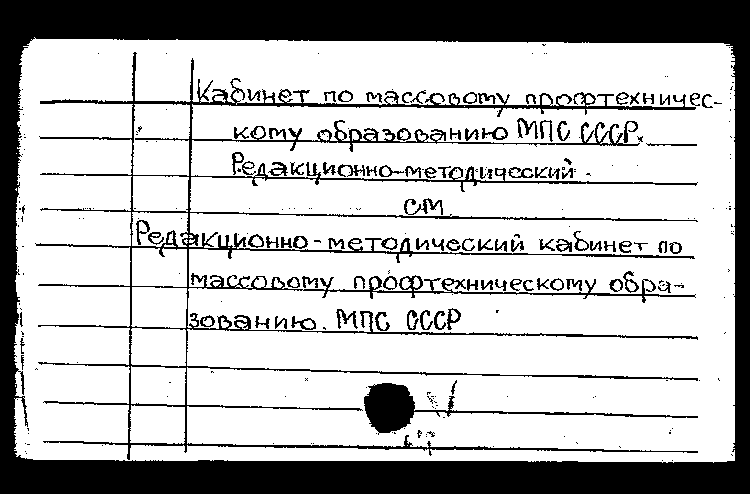 Кабинет по массовому профтехничес-
кому образованию МПС СССР.
Редакционно-методический.
см
Редакционно-методический кабинет по
массовому профтехническому обра-
зованию. МПС СССР